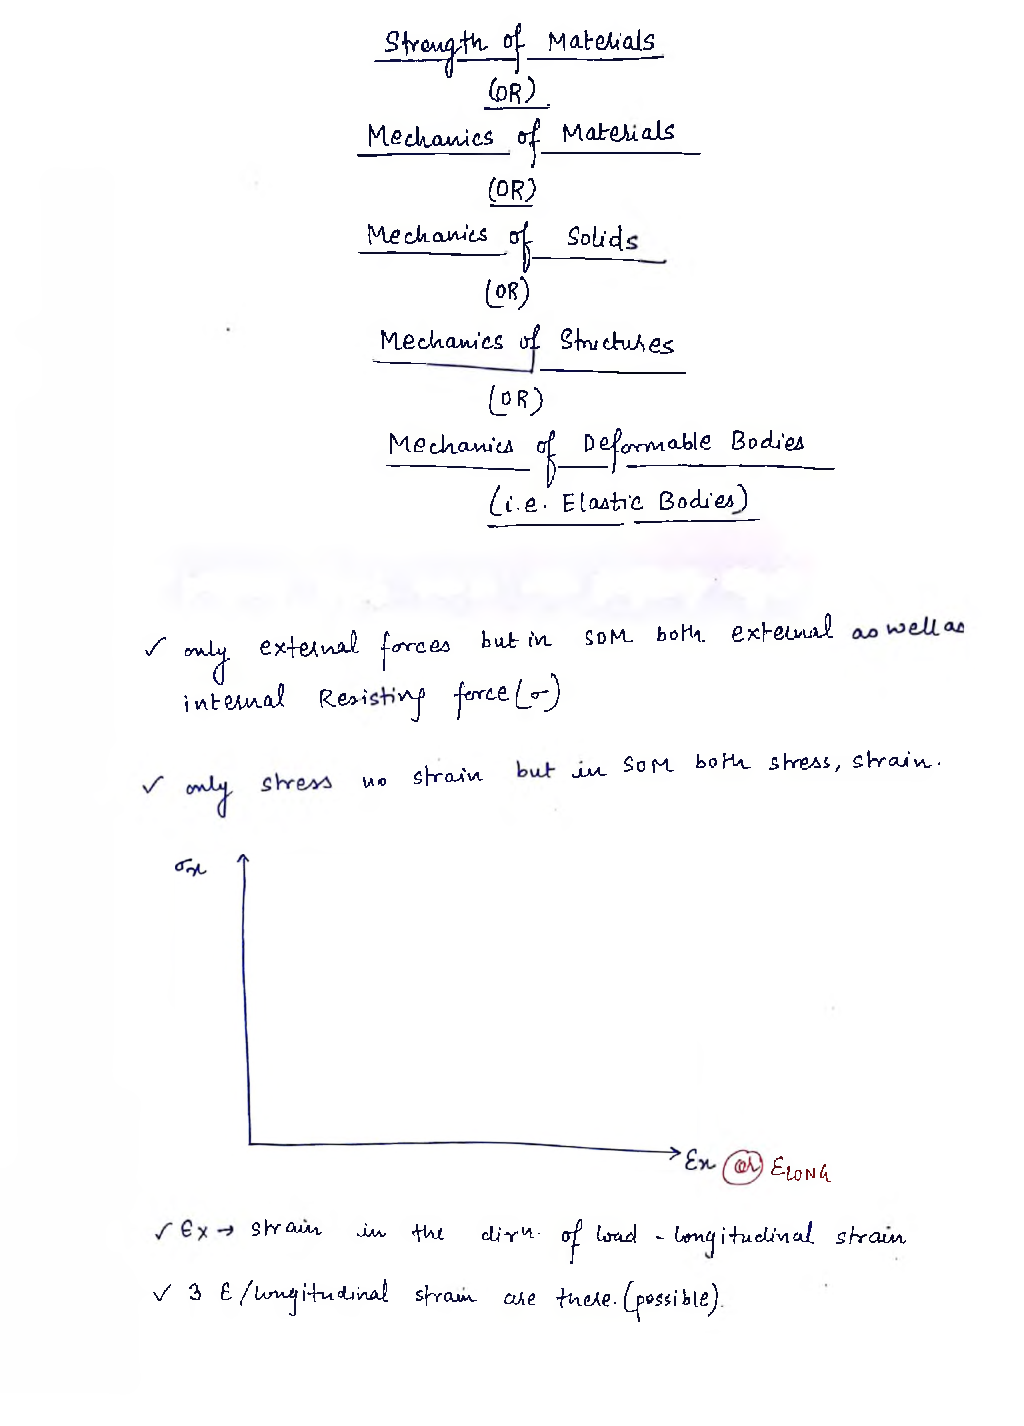 Strength of Materials
(OR)
Mechanics of Materials
(OR)
Mechanics of Solids
(OR)
Mechanics of Structures
(OR)
Mechanics of Deformable Bodies
(i.e. Elastic Bodies)
✓ only external forces but in SOM both external as well as
internal Resisting force (σ)
✓ only stress no strain but in SOM both stress, strain.
σx
Ex (or) ELONG
✓ Ex → strain in the dirn. of load - longitudinal strain
✓ 3 E/longitudinal strain are there. (possible).